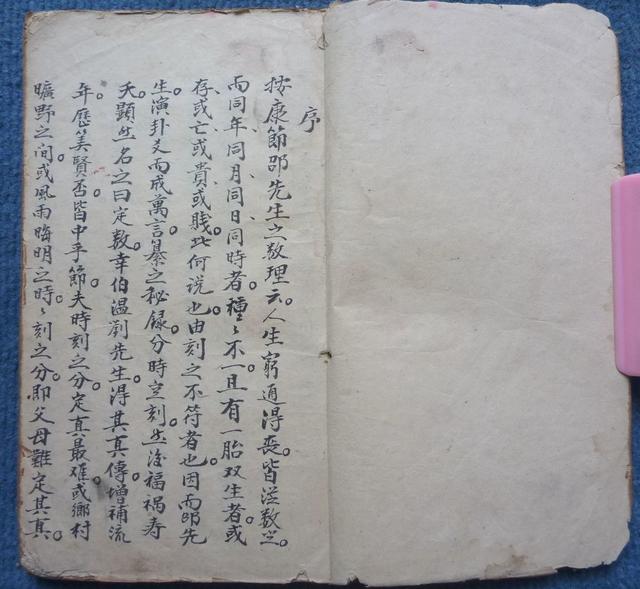 序
按康節邵先生之数理云。人生窮通得喪。皆從数定。
而同年同月同日同時者。種〻不一且有一胎双生者。或
存或亡或貴或賎。此何说也由刻之不符者也。因而邵先
生演卦爻而成萬言。纂之秘録。分時定刻。然後福禍寿
夭。顯然名之曰定数。幸伯温劉先生得其真傳。增補流
年。歷筭賢否。皆中乎節。夫時刻之分。定真最难。或鄉村
曠野之间。或風雨晦明之時。〻刻之分。即父母難定其真。